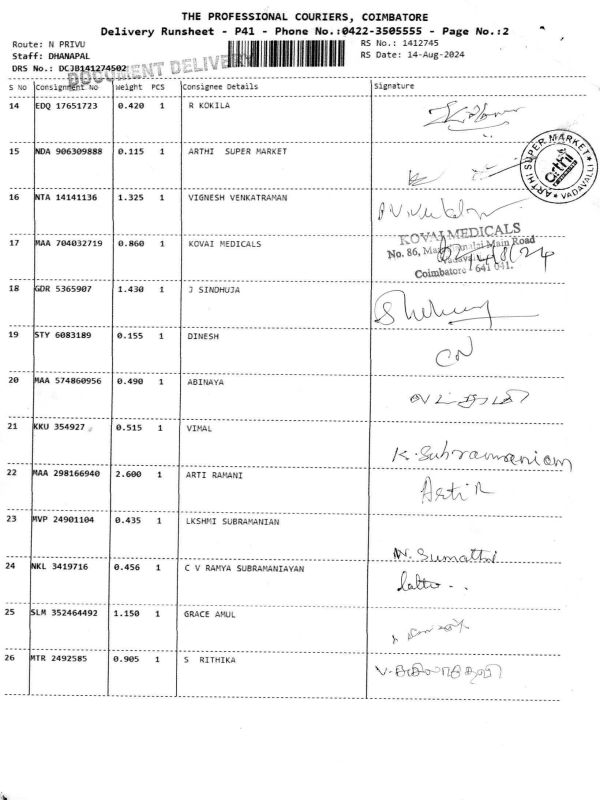 THE PROFESSIONAL COURIERS, COIMBATORE
Delivery Runsheet - P41 - Phone No.:0422-3505555 - Page No.:2
Route: N PRIVU RS No.: 1412745
Staff: DHANAPAL RS Date: 14-Aug-2024
DRS No.: DCJB141274502
DOCUMENT DELIVERY
S No Consignment No Weight PCS Consignee Details Signature
14 EDQ 17651723 0.420 1 R KOKILA
15 NDA 906309888 0.115 1 ARTHI SUPER MARKET
ARTHI SUPER MARKET
arthi
VADAVALLI
16 NTA 14141136 1.325 1 VIGNESH VENKATRAMAN
17 MAA 704032719 0.860 1 KOVAI MEDICALS
KOVAI MEDICALS
No. 86, Main Road
Coimbatore - 641 041.
18 GDR 5365907 1.430 1 J SINDHUJA
19 STY 6083189 0.155 1 DINESH
20 MAA 574860956 0.490 1 ABINAYA
21 KKU 354927 0.515 1 VIMAL
K. Subramaniam
22 MAA 298166940 2.600 1 ARTI RAMANI
Arti R
23 MVP 24901104 0.435 1 LKSHMI SUBRAMANIAN
N. Sumathi
24 NKL 3419716 0.456 1 C V RAMYA SUBRAMANIAYAN
25 SLM 352464492 1.150 1 GRACE AMUL
26 MTR 2492585 0.905 1 S RITHIKA